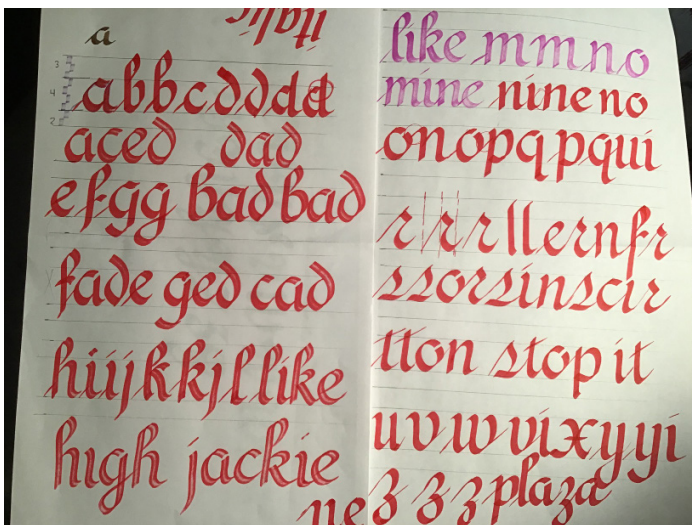 italic
a
3
4
2
abbcdddd
aced dad
efgg bad bad
fade ged cad
hiijkkjl like
high jackie
like m m n o
mine nine no
onopqpqui
r r r l l e r n f r
ssorsinscir
tton stop it
uvwvixyyi
z z z plaza